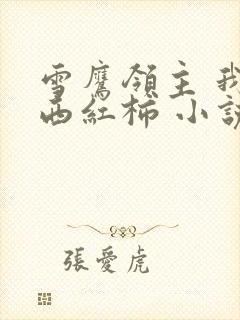 雪鷹領主 我
西紅柿 小說
張愛虎